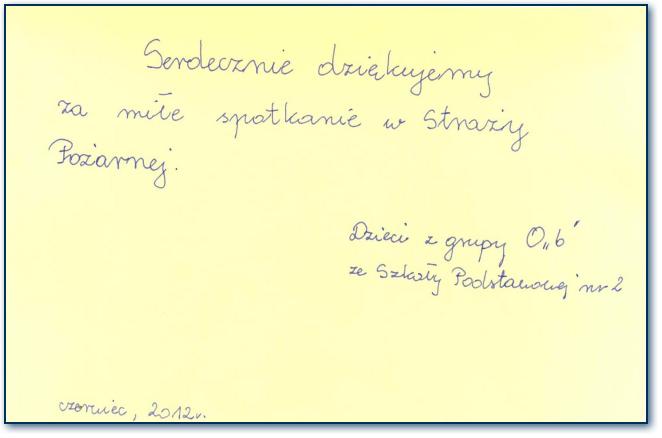 Serdecznie dziękujemy
za miłe spotkanie w Straży
Pożarnej.
Dzieci z grupy O„b"
ze Szkoły Podstawowej nr 2
czerwiec, 2012r.